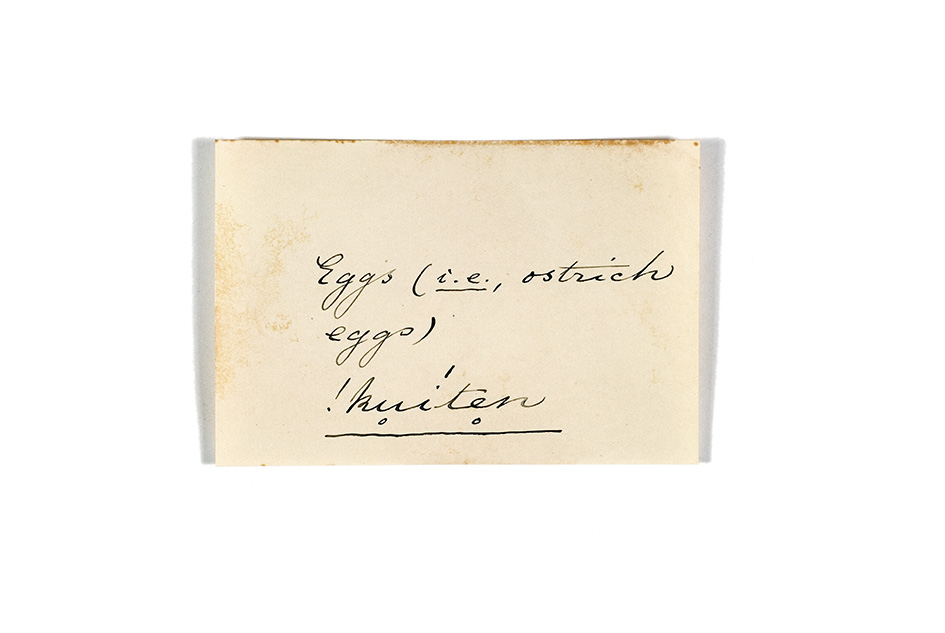 Eggs (i.e., ostrich
eggs)
!ku̥i´te̥n